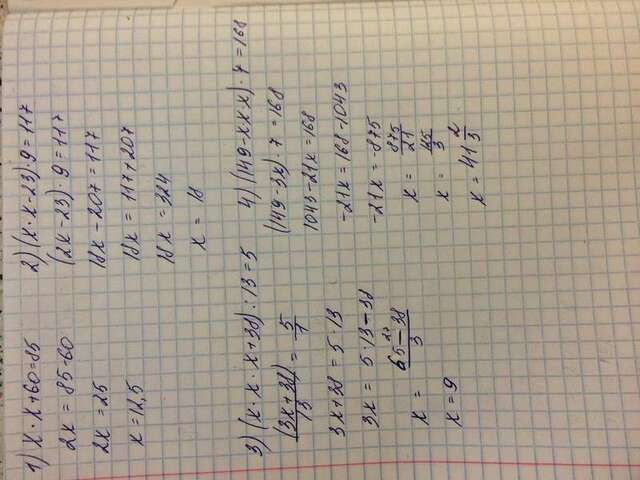 1) x · x + 60 = 85
2x = 85 - 60
2x = 25
x = 12,5
2) (x · x - 23) · 9 = 117
(2x - 23) · 9 = 117
18x - 207 = 117
18x = 117 + 207
18x = 324
x = 18
3) (x · x · x + 38) : 13 = 5
(3x + 38)/13 = 5/1
3x + 38 = 5 · 13
3x = 5 · 13 - 38
x = (65 - 38)/3 27
x = 9
4) (149 - x x x) · 7 = 168
(149 - 3x) · 7 = 168
1043 - 21x = 168
-21x = 168 - 1043
-21x = -875
x = 875/21
x = 125/3
x = 41 2/3